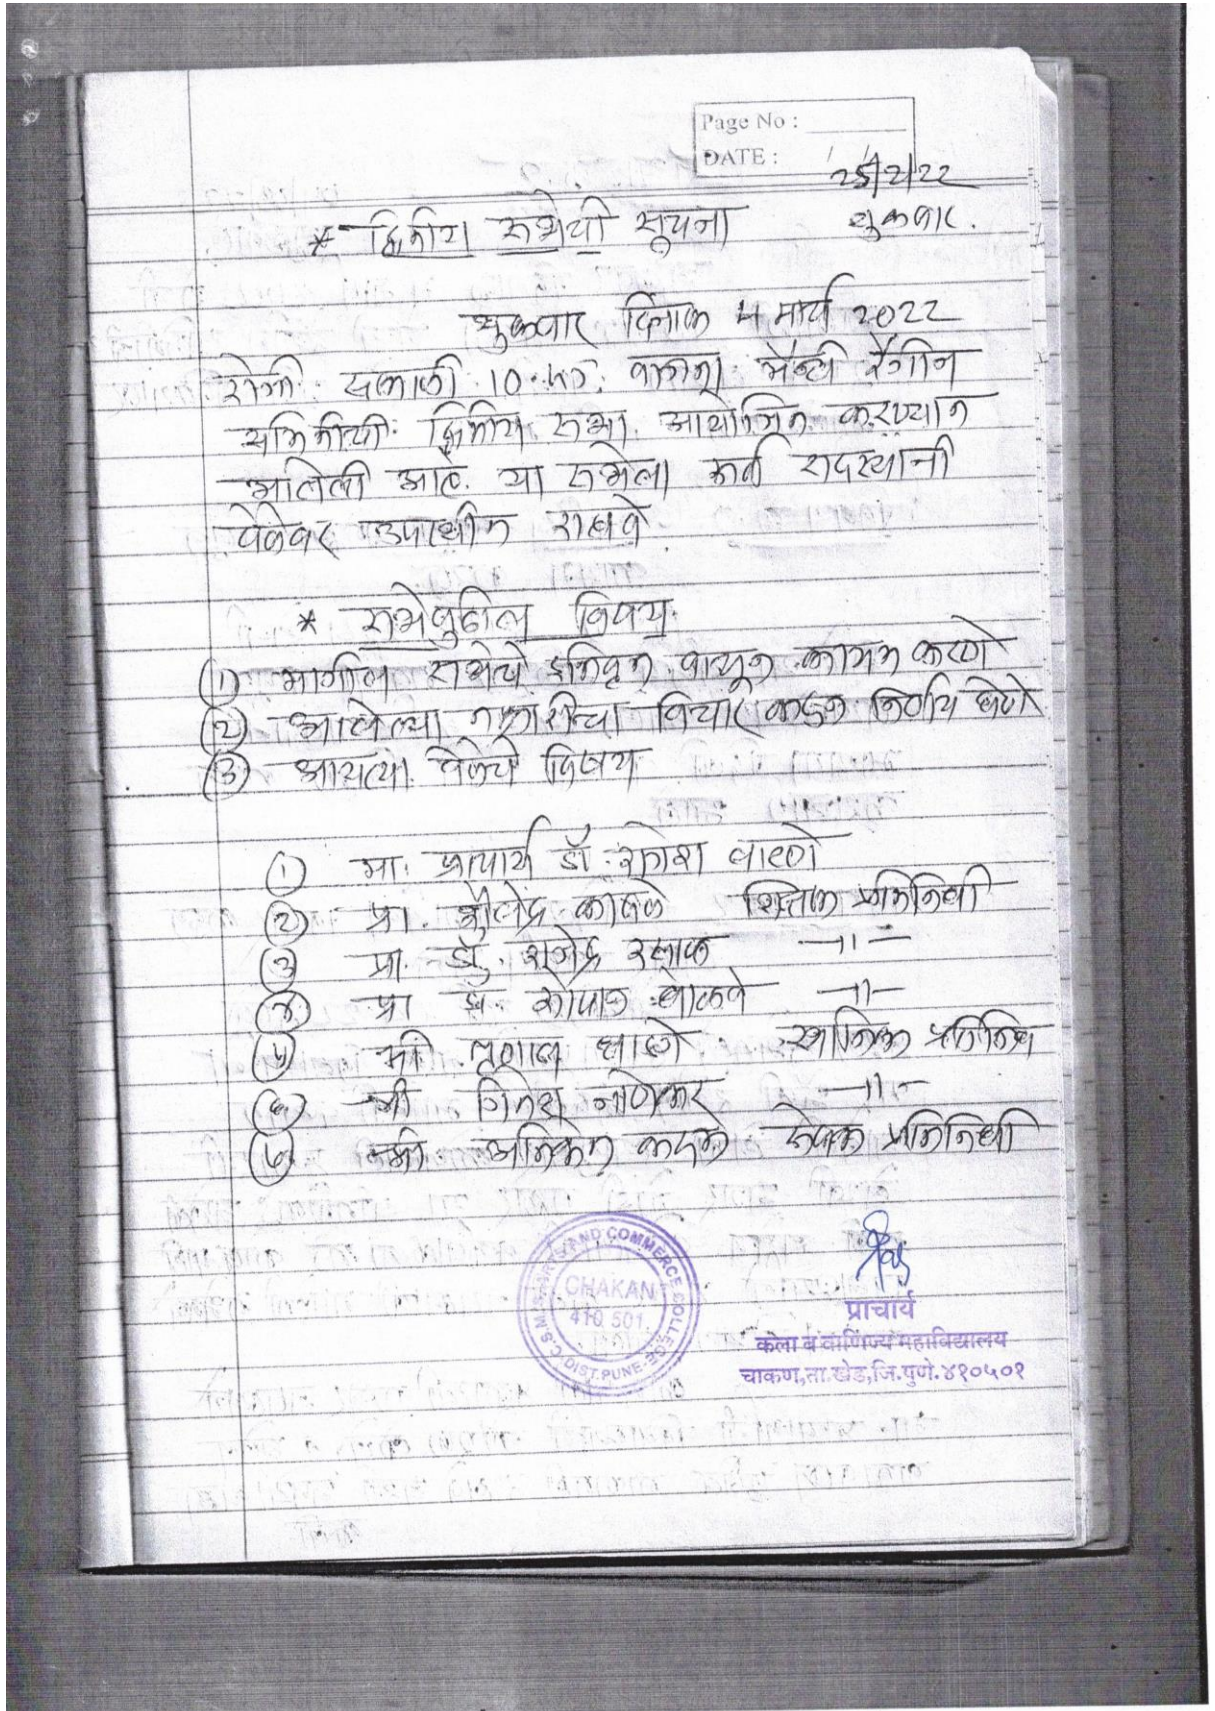 Page No :
DATE :
25/2/22
शुक्रवार.
* द्वितीय सभेची सूचना
शुक्रवार दिनांक 4 मार्च 2022
रोजी सकाळी 10.45 वाजता अँन्टी रँगींग
समितीची द्वितीय सभा आयोजित करण्यात
आलेली आहे. या सभेला सर्व सदस्यांनी
वेळेवर उपस्थीत राहावे
* सभेपुढील विषय
(1) मागील सभेचे इतिवृत्त वाचून कायम करणे
(2) आलेल्या तक्रारींचा विचार करून निर्णय घेणे
(3) आयत्या वेळेचे विषय
(1) मा. प्राचार्य डॉ.
(2) प्रा. शैलेंद्र कांबळे शिक्षक प्रतिनिधी
(3) प्रा. डॉ. राजेंद्र —॥—
(4) प्रा —॥—
(5) श्री स्थानिक प्रतिनिधि
(6) श्री —॥—
(7) श्री अनिकेत प्रतिनिधी
C.S.M.'S. ARTS AND COMMERCE COLLEGE
CHAKAN
410 501.
DIST.PUNE.
प्राचार्य
कला व वाणिज्य महाविद्यालय
चाकण,ता.खेड,जि.पुणे.४१०५०१